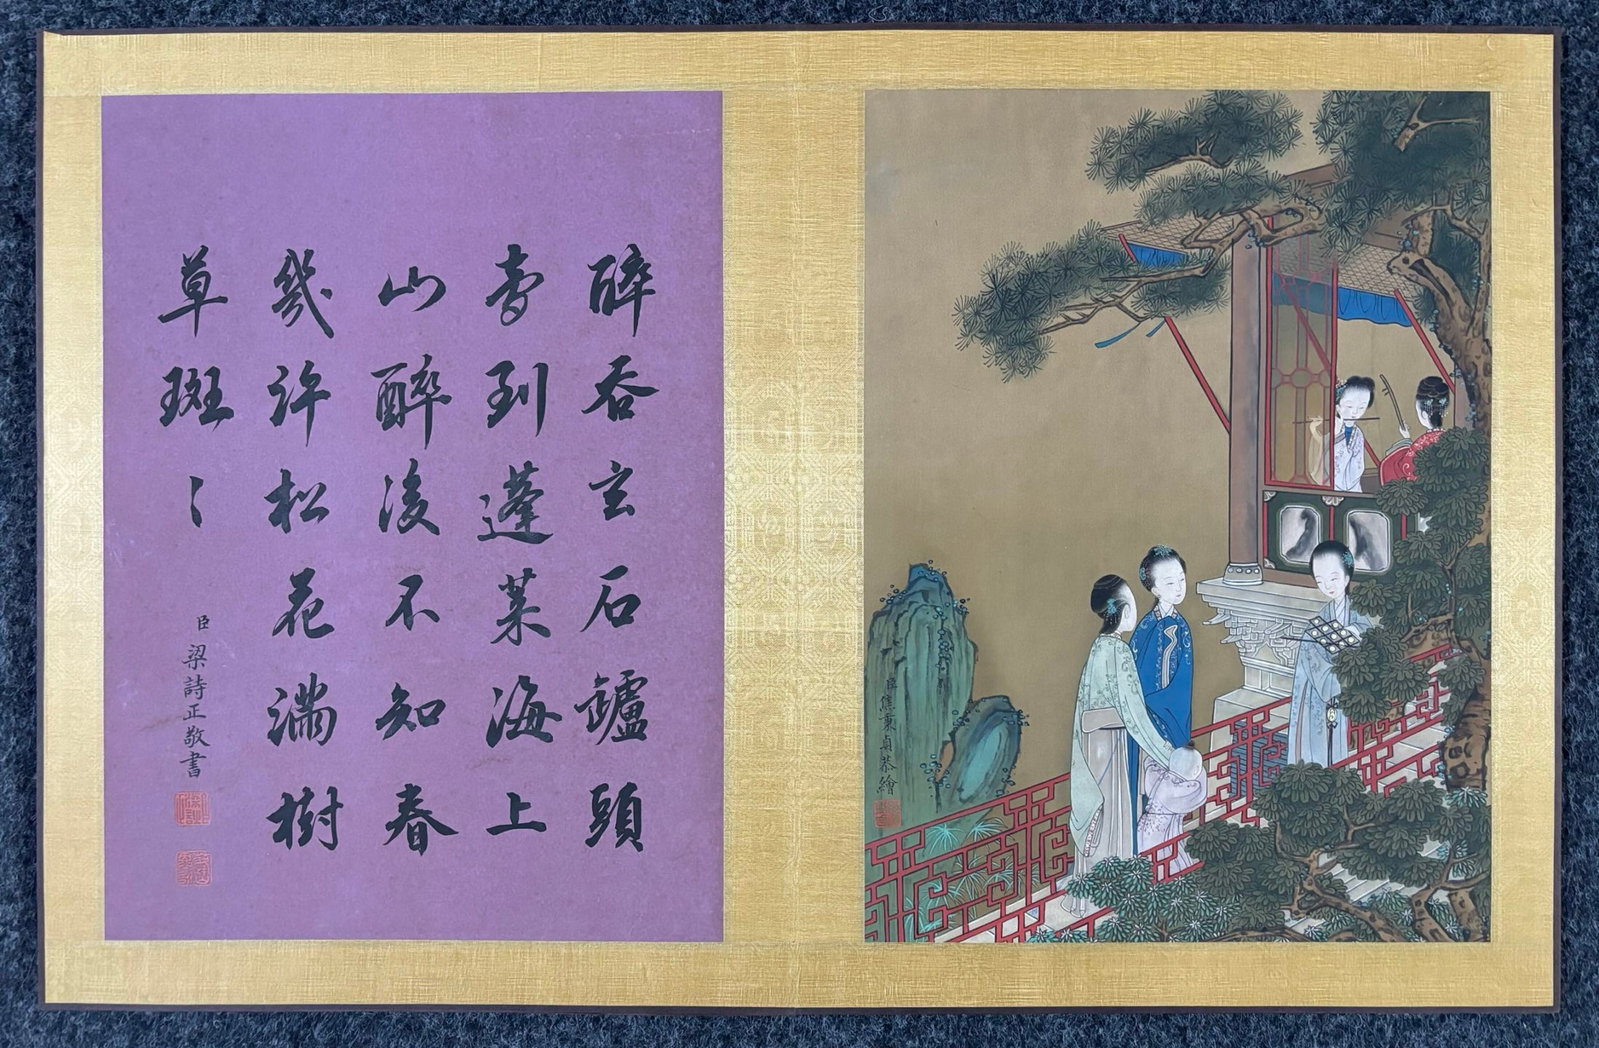 醉吞玄石鑪頭
夢到蓬莱海上
山醉後不知春
幾許松花滿樹
草斑〻
臣梁詩正敬書
臣焦秉貞恭繪